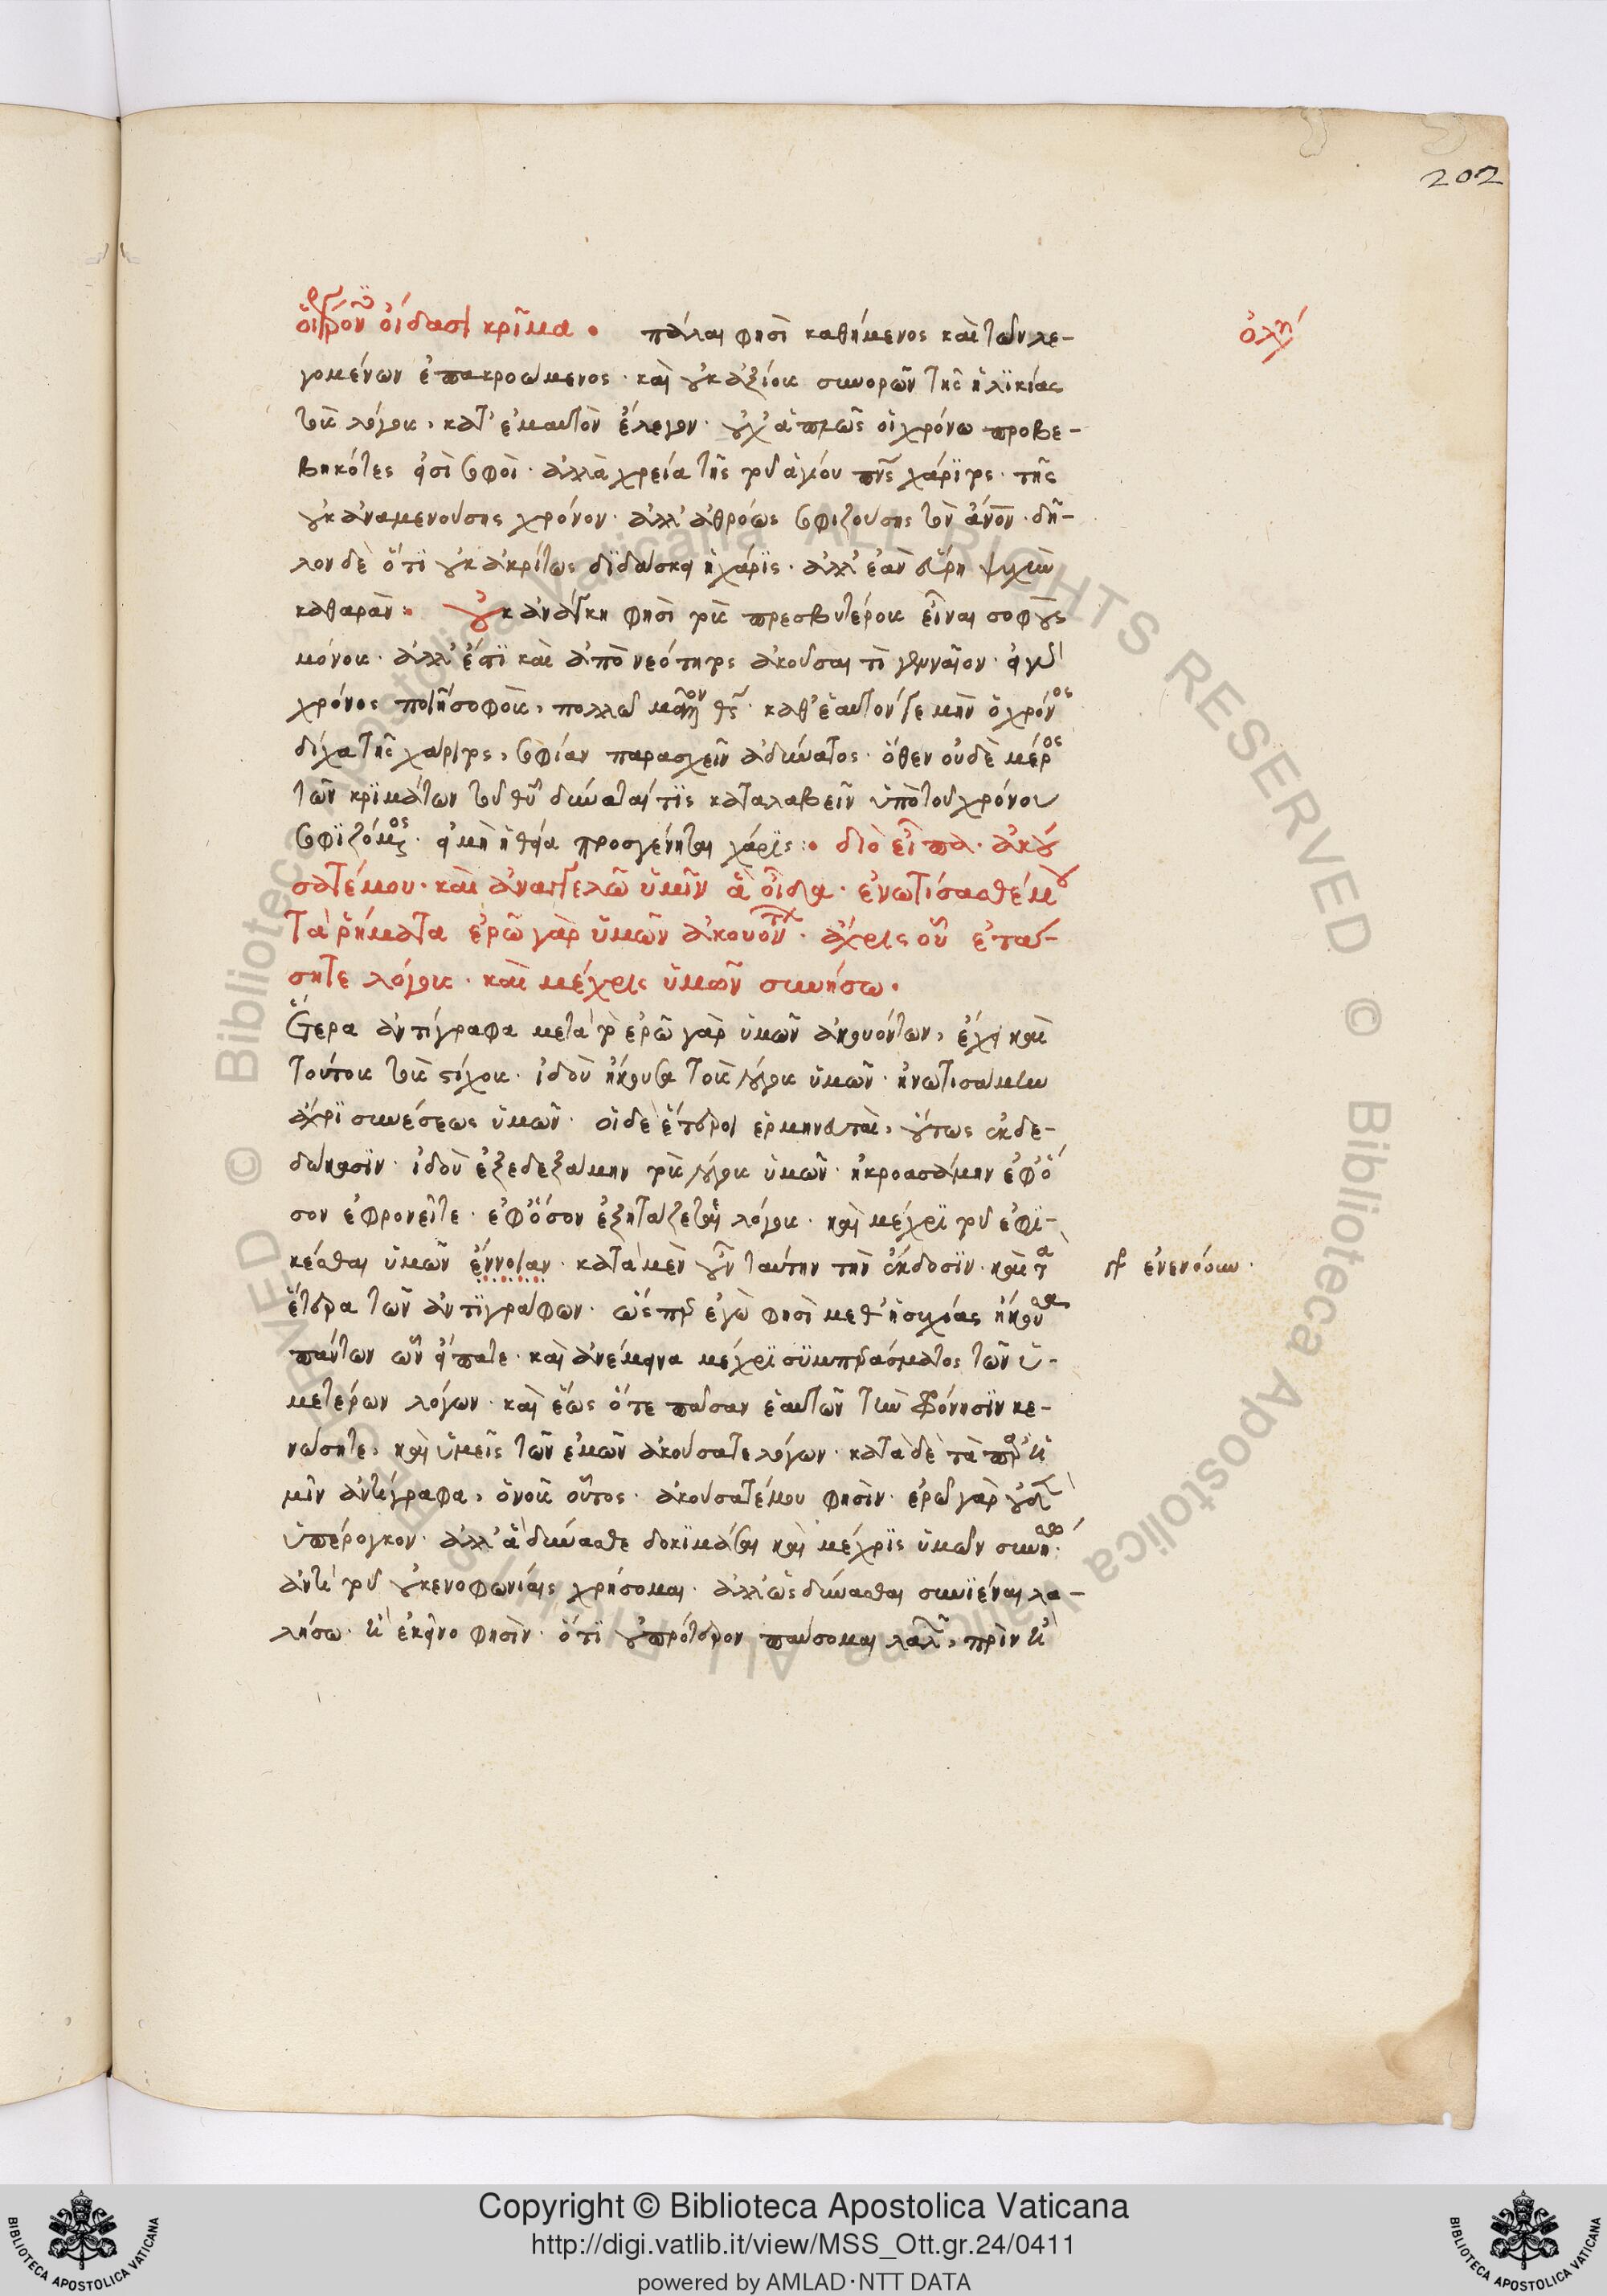 202
οἱ γέροντες οἴδασι κρῖμα · πάλαι φησὶ καθήμενος καὶ τῶν λε-
ὀλυμπ
γομένων ἐπακροώμενος · καὶ οὐκ ἀξίους συνορῶν τῆς ἡλικίας
τοὺς λόγους, κατ' ἐμαυτὸν ἔλεγον · οὐχ ἁπλῶς οἱ χρόνω προβε-
βηκότες εἰσὶ σοφοὶ · ἀλλὰ χρεία τῆς τοῦ ἁγίου πνς χάριτος · τῆς
οὐκ ἀναμενούσης χρόνον · ἀλλ' ἀθρόως σοφιζούσης τὸν ἄνον · δῆ-
λον δὲ ὅτι οὐκ ἀκρίτως διδάσκει ἡ χάρις · ἀλλ' ἐὰν εὕρη ψυχὴν
καθαράν · οὐκ ἀνάγκη φησὶ τοὺς πρεσβυτέρους εἶναι σοφοὺς
μόνους · ἀλλ' ἔστι καὶ ἀπὸ νεότητος ἀκοῦσαι τὶ γενναῖον · εἰ γὰρ
χρόνος ποιεῖ σοφοὺς, πολλῶ μᾶλλον θς · καθ' ἑαυτόν γε μὴν ὁ χρόνος
δίχα τῆς χάριτος, σοφίαν παρασχεῖν ἀδύνατος · ὅθεν οὐδὲ μέρος
τῶν κριμάτων τοῦ θυ δύναταί τις καταλαβεῖν ὑπὸ τοῦ χρόνου
σοφιζόμενος · εἰ μὴ ἡ θεία προσγένηται χάρις · διὸ εἶπα · ἀκού
σατέ μου · καὶ ἀναγγελῶ ὑμῖν ἃ οἶδα · ἐνωτίσασθέ μου
τὰ ῥήματα ἐρῶ γὰρ ὑμῶν ἀκουόντων · ἄχρις οὗ ἐτά-
σητε λόγους · καὶ μέχρις ὑμῶν συνήσω ·
Ἕτερα ἀντίγραφα μετὰ τὸ ἐρῶ γὰρ ὑμῶν ἀκουόντων, ἔχει καὶ
τούτους τοὺς στίχους · ἰδοὺ ἤκουσα τοὺς λόγους ὑμῶν · ἠνωτισάμην
ἄχρι συνέσεως ὑμῶν · οἱ δὲ ἕτεροι ἑρμηνευταὶ, οὕτως ἐκδε-
δώκασιν · ἰδοὺ ἐξεδεξάμην τοὺς λόγους ὑμῶν · ἠκροασάμην ἐφ' ὅ
σον ἐφρονεῖτε · ἐφ' ὅσον ἐξητάζετε λόγους · καὶ μέχρι τοῦ ἐφι-
κέσθαι ὑμῶν ἔννοιαν · κατὰ μὲν οὖν ταύτην τὴν ἔκδοσιν · καὶ τὰ
γρ ἐνενόουν ·
ἕτερα τῶν ἀντιγράφων · ὥσπερ ἐγὼ φησὶ μεθ' ἡσυχίας ἤκουσα
πάντων ὧν εἴπατε · καὶ ἀνέμεινα μέχρι συμπεράσματος τῶν ὑ-
μετέρων λόγων · καὶ ἕως ὅτε πᾶσαν ἑαυτῶν τὴν φρόνησιν κε-
νώσητε, καὶ ὑμεῖς τῶν ἐμῶν ἀκούσατε λόγων · κατὰ δὲ τὰ παρ' ἡ
μῖν ἀντίγραφα, ὁ νοῦς οὗτος · ἀκούσατέ μου φησίν · ἐρῶ γὰρ οὐδὲν
ὑπέρογκον · ἀλλ' ἃ δύνασθε δοκιμάσαι καὶ μέχρις ὑμῶν συνήσω ·
ἀντὶ τοῦ οὐ κενοφωνίαις χρήσομαι · ἀλλ' ὡς δύνασθαι συνιέναι λα-
λήσω · ἢ ἐκεῖνο φησίν · ὅτι οὐ πρότερον παύσομαι λαλῶν, πρὶν ἢ
Copyright © Biblioteca Apostolica Vaticana
http://digi.vatlib.it/view/MSS_Ott.gr.24/0411
powered by AMLAD·NTT DATA